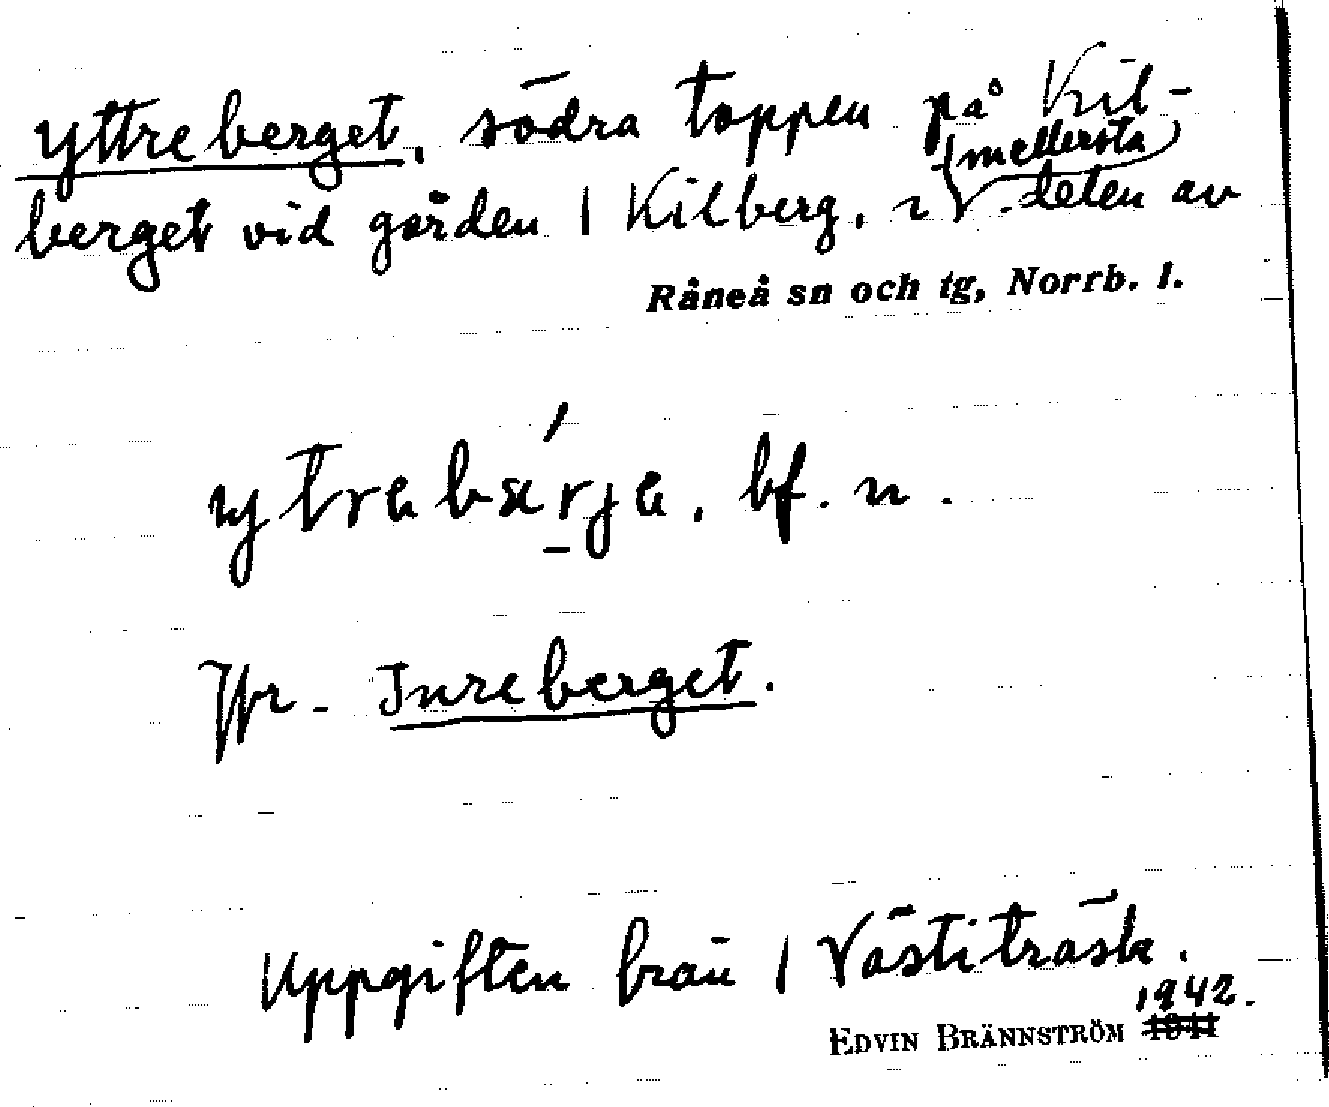 Yttreberget, södra toppen på Kil-
berget vid gården 1 Kilberg, i v. mellersta delen av
Råneå sn och tg, Norrb. l.
ytrabærja, bf. n.
Jfr. Inreberget.
Uppgiften från 1 Västiträsk.
1942.
EDVIN BRÄNNSTRÖM 1941